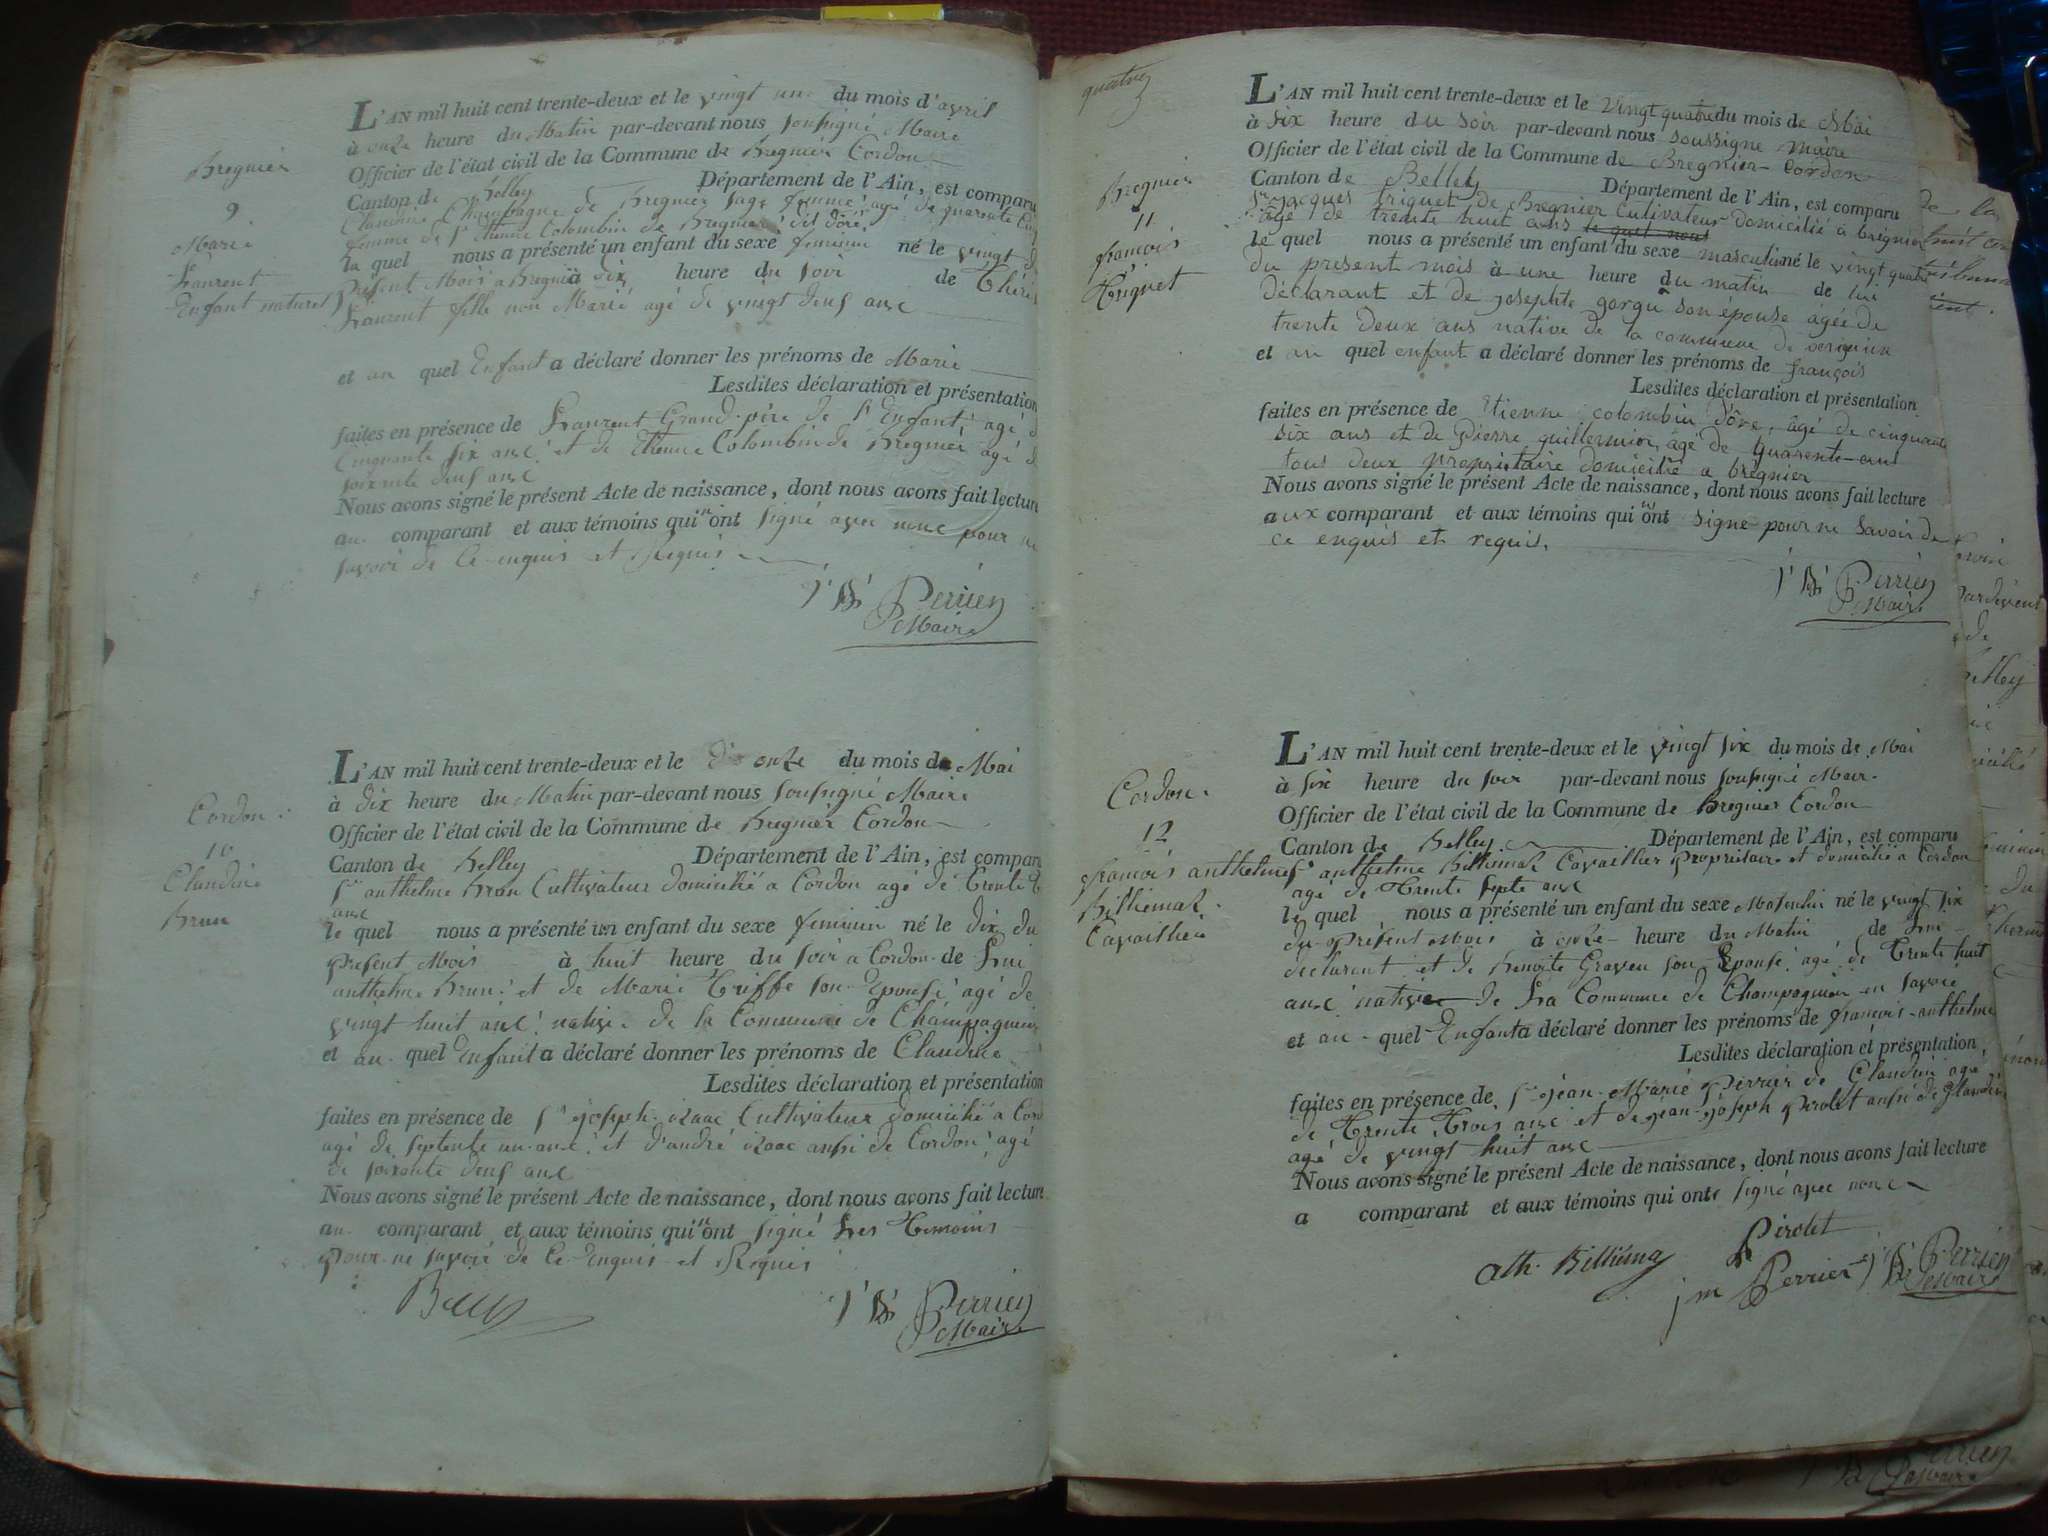 Bregnier
9
Marie
Laurent
Enfant naturel
L'AN mil huit cent trente-deux et le vingt un du mois d'avril
à onze heure du Matin par-devant nous soussigné Maire
Officier de l'état civil de la Commune de Bregnier Cordon
Canton de Belley Département de l'Ain, est comparu
Claudine Champagne de Bregnier sage femme agé de quarente
femme de Sr Etienne Colombin de Bregnier dit dôre
la quel nous a présenté un enfant du sexe feminin né le vingt
présent Mois a Bregnier à dix heure du soir de
Laurent fille non Marié agé de vingt deux ans
et au quel Enfant a déclaré donner les prénoms de Marie
Lesdites déclaration et présentation
faites en présence de Laurent Grand-père de l'Enfant, agé
Cinquante six ans et de Etienne Colombin de Bregnier agé
soixante deux ans
Nous avons signé le présent Acte de naissance, dont nous avons fait lecture
au comparant et aux témoins qui n'ont signé avec nous pour
savoir de Ce enquis et Requis
Perrier
Maire
Cordon
10
Claudine
Brun
L'AN mil huit cent trente-deux et le onze du mois de Mai
à dix heure du Matin par-devant nous soussigné Maire
Officier de l'état civil de la Commune de Bregnier Cordon
Canton de Belley Département de l'Ain, est comparu
Sr anthelme Brun Cultivateur domicilié a Cordon agé de Trente
ans
le quel nous a présenté un enfant du sexe feminin né le dix du
présent Mois à huit heure du soir a Cordon de Lui
anthelme Brun et de Marie Triffe son Epouse agé de
vingt huit ans native de la Commune de Champagneux
et au quel Enfant a déclaré donner les prénoms de Claudine
Lesdites déclaration et présentation
faites en présence de Sr joseph izaac Cultivateur domicilié a
agé de septente un ans et d'andré izaac aussi de Cordon agé
de soixante deux ans
Nous avons signé le présent Acte de naissance, dont nous avons fait lecture
au comparant et aux témoins qui n'ont signé Les Temoins
pour ne savoir de Ce Enquis et Requis
Perrier
Maire
quatre
Bregnier
11
françois
Triquet
L'AN mil huit cent trente-deux et le vingt quatre du mois de Mai
à six heure du soir par-devant nous soussigne maire
Officier de l'état civil de la Commune de Bregnier-Cordon
Canton de Belley Département de l'Ain, est comparu
Sr jacques triquet de Bregnier Cultivateur domicilié à brégnier
agé de trente huit ans le quel nous
le quel nous a présenté un enfant du sexe masculin né le vingt quatre
du present mois à une heure du matin de lui
déclarant et de josephte gorgu son épouse agée de
trente deux ans native de la commune de
et au quel enfant a déclaré donner les prénoms de françois
Lesdites déclaration et présentation
faites en présence de Etienne colombin d'ôre, âgé de cinquante
six ans et de Pierre guillermier, âgé de quarente ans
tous deux proprietaire domicilié a brégnier
Nous avons signé le présent Acte de naissance, dont nous avons fait lecture
aux comparant et aux témoins qui n'ont signe pour ne savoir de
ce enquis et requis.
Perrier
Maire
Cordon
12
françois anthelme
Billiemaz
Cavaillier
L'AN mil huit cent trente-deux et le vingt six du mois de Mai
à six heure du soir par-devant nous soussigné Maire
Officier de l'état civil de la Commune de Bregnier Cordon
Canton de Belley Département de l'Ain, est comparu
Sr anthelme Billiemaz Cavaillier Propriétaire et domicilié a Cordon
agé de Trente Septe ans
le quel nous a présenté un enfant du sexe Masculin né le vingt six
du présent Mois à onze heure du Matin de Lui
déclarant et de Benoite Graven son Epouse agé de Trente huit
ans native de La Commune de Champagneux en Savoie
et au quel Enfant a déclaré donner les prénoms de françois-anthelme
Lesdites déclaration et présentation
faites en présence de Sr jean-Marie Perrier de Glandieu agé
de Trente Trois ans et de jean-joseph Pirolet aussi de Glandieu
agé de vingt huit ans
Nous avons signé le présent Acte de naissance, dont nous avons fait lecture
a comparant et aux témoins qui ont signé avec nous
Pirolet
ath. Billiéma
jm Perrier
Perrier
Maire